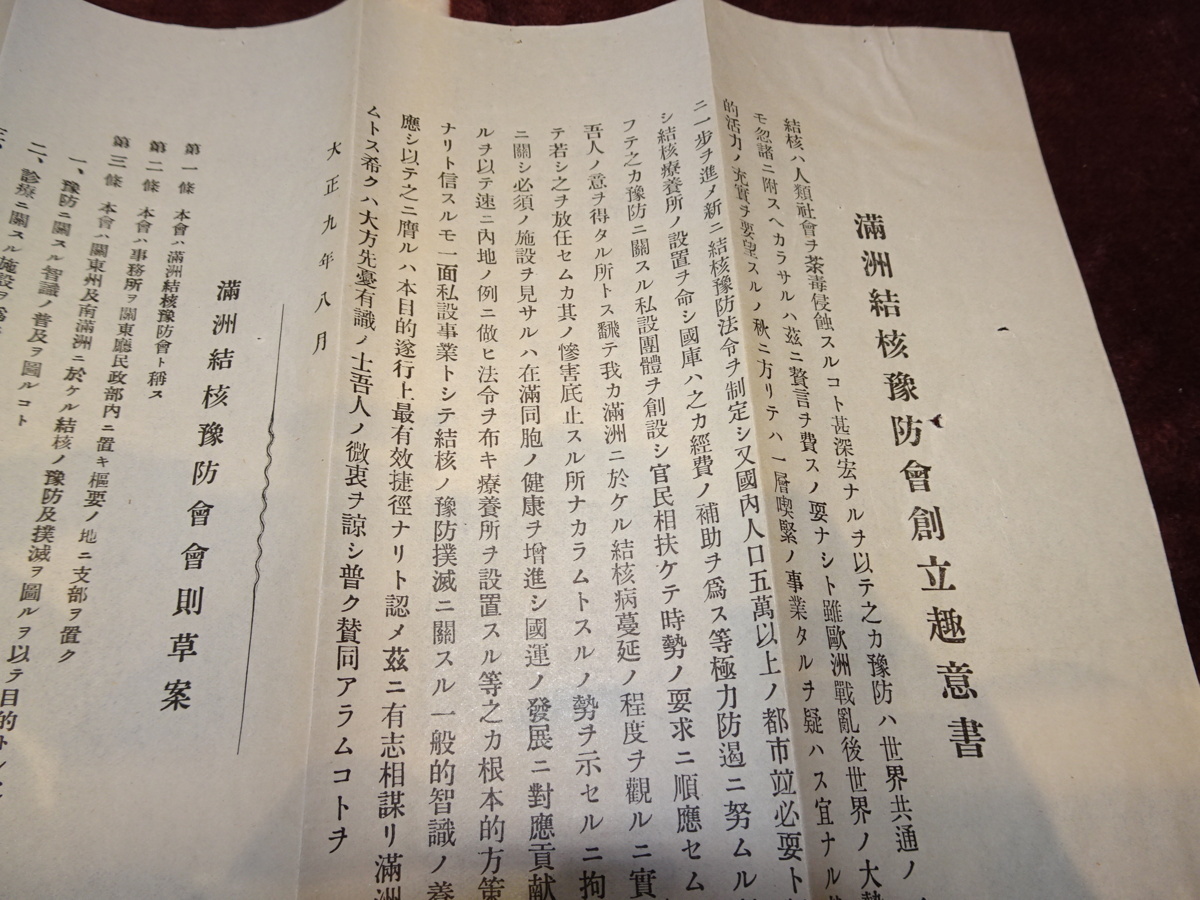 滿洲結核豫防會創立趣意書
結核ハ人類社會ヲ荼毒侵蝕スルコト甚深宏ナルヲ以テ之カ豫防ハ世界共通ノ
モ忽諸ニ附スヘカラサルハ玆ニ贅言ヲ費スノ要ナシト雖歐洲戰亂後世界ノ大勢
的活力ノ充實ヲ要望スルノ秋ニ方リテハ一層喫緊ノ事業タルヲ疑ハス宜ナル
ニ一步ヲ進メ新ニ結核豫防法令ヲ制定シ又國內人口五萬以上ノ都市竝必要ト
シ結核療養所ノ設置ヲ命シ國庫ハ之カ經費ノ補助ヲ爲ス等極力防遏ニ努ムル
フテ之カ豫防ニ關スル私設團體ヲ創設シ官民相扶ケテ時勢ノ要求ニ順應セム
吾人ノ意ヲ得タル所トス飜テ我カ滿洲ニ於ケル結核病蔓延ノ程度ヲ觀ルニ實
テ若シ之ヲ放任セムカ其ノ慘害底止スル所ナカラムトスルノ勢ヲ示セルニ拘
ニ關シ必須ノ施設ヲ見サルハ在滿同胞ノ健康ヲ增進シ國運ノ發展ニ對應貢献
ルヲ以テ速ニ內地ノ例ニ做ヒ法令ヲ布キ療養所ヲ設置スル等之カ根本的方策
ナリト信スルモ一面私設事業トシテ結核ノ豫防撲滅ニ關スル一般的智識ノ養
應シ以テ之ニ膺ルハ本目的遂行上最有效捷徑ナリト認メ玆ニ有志相謀リ滿洲
ムトス希クハ大方先憂有識ノ士吾人ノ微衷ヲ諒シ普ク賛同アラムコトヲ
大正九年八月
滿洲結核豫防會會則草案
第一條 本會ハ滿洲結核豫防會ト稱ス
第二條 本會ハ事務所ヲ關東廳民政部內ニ置キ樞要ノ地ニ支部ヲ置ク
第三條 本會ハ關東州及南滿洲ニ於ケル結核ノ豫防及撲滅ヲ圖ルヲ以テ目的
一、豫防ニ關スル智識ノ普及ヲ圖ルコト
二、診療ニ關スル施設ヲ